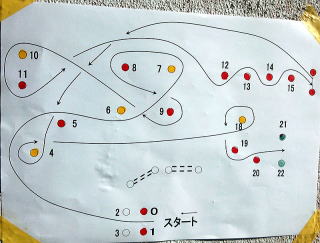 10
11
8
7
12
13
14
15
6
9
5
4
18
19
20
21
22
2 0
3 1 スタート